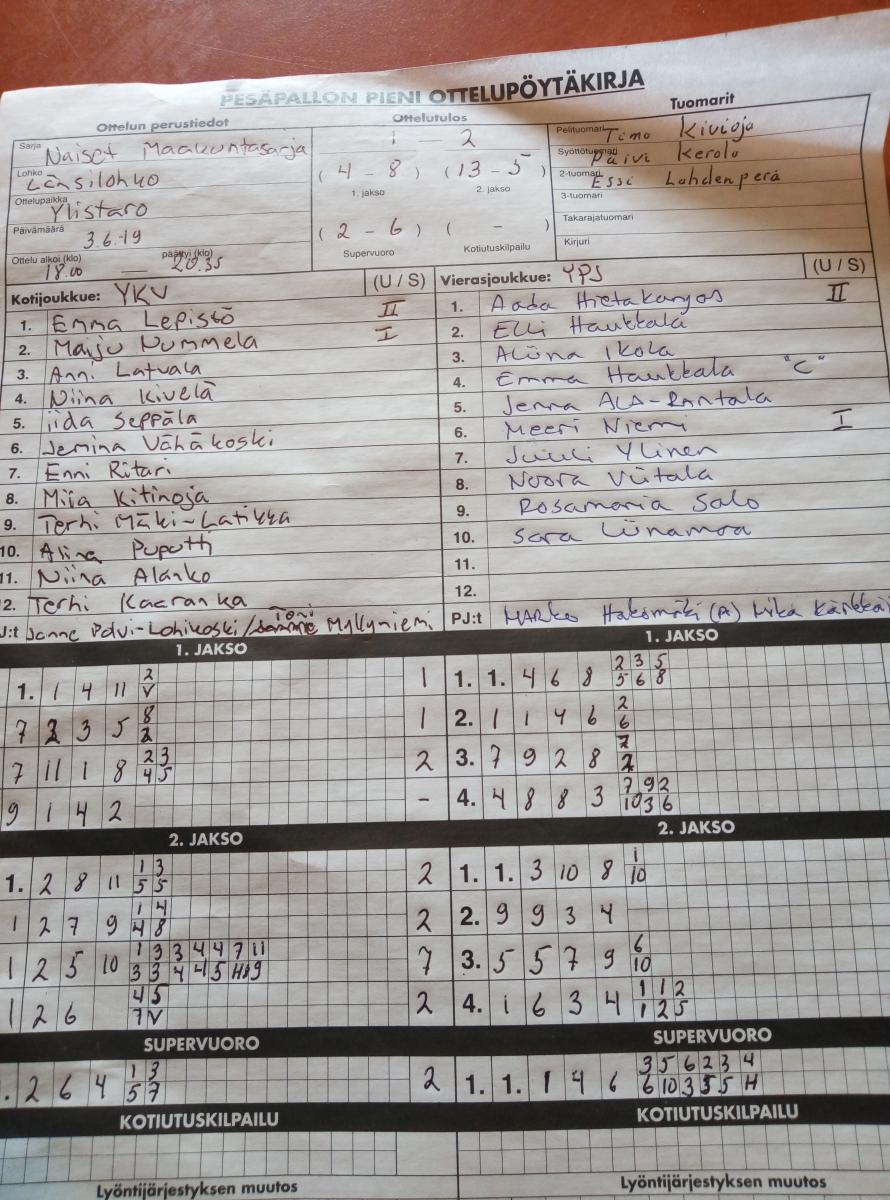 PESÄPALLON PIENI OTTELUPÖYTÄKIRJA
Ottelun perustiedot
Sarja Naiset Maakuntasarja
Lohko Länsilohko
Ottelupaikka Ylistaro
Päivämäärä 3.6.19
Ottelu alkoi (klo) 18.00 — päättyi (klo) 20.35
Ottelutulos
1 - 2
(4 - 8) (13 - 5)
1. jakso 2. jakso
(2 - 6) ( - )
Supervuoro Kotiutuskilpailu
Tuomarit
Pelituomari Timo Kivioja
Syöttötuomari Päivi Kerola
2-tuomari Essi Lahdenperä
3-tuomari
Takarajatuomari
Kirjuri
Kotijoukkue: YKV (U / S)
1. Emma Lepistö II
2. Maiju Nummela I
3. Anni Latvala
4. Niina Kivelä
5. iida Seppälä
6. Jemina Vähäkoski
7. Enni Ritari
8. Miia Kitinoja
9. Terhi Mäki-Latikka
10. Alina Puputti
11. Niina Alanko
2. Terhi Kaaranka
J:t Janne Polvi-Lohikoski / Toni Myllyniemi
Vierasjoukkue: YPS (U / S)
1. Aada Hietakangas II
2. Elli Haukkala
3. Aliina Ikola
4. Emma Haukkala "C"
5. Jenna ALA-Rantala
6. Meeri Niemi I
7. Juuli Ylinen
8. Noora Viitala
9. Rosamaria Salo
10. Sara Liinamaa
11.
12.
PJ:t MARKO Hakomäki (A) Mika
1. JAKSO
1. 1 4 11 2 1
V
7 2 3 5 8 1
2
7 11 1 8 2 3 2
4 5
9 1 4 2 -
1. JAKSO
1. 1. 4 6 8 2 3 5
5 6 8
2. 1 1 4 6 2
6
3. 7 9 2 8 7
2
4. 4 8 8 3 7 9 2
10 3 6
2. JAKSO
1. 2 8 11 1 3 2
5 5
1 2 7 9 1 4 2
4 8
1 2 5 10 1 3 3 4 4 7 11 7
3 3 4 4 5 9
1 2 6 4 5 2
7 V
2. JAKSO
1. 1. 3 10 8 1
10
2. 9 9 3 4
3. 5 5 7 9 6
10
4. 1 6 3 4 1 1 2
1 2 5
SUPERVUORO
. 2 6 4 1 3 2
5 7
SUPERVUORO
1. 1. 1 4 6 3 5 6 2 3 4
6 10 3 5 5 H
KOTIUTUSKILPAILU
KOTIUTUSKILPAILU
Lyöntijärjestyksen muutos
Lyöntijärjestyksen muutos